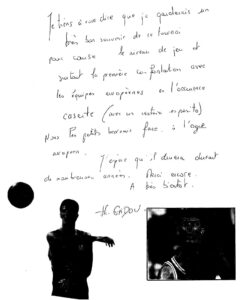 Je tiens à vous dire que je garderais un
très bon souvenir de ce tournoi
pour cause le niveau de jeu et
surtout la première confrontation avec
les équipes européennes en l'occurence
(avec un certain esposito)
Nous les petits face à l'ogre
européen.
J'espère qu'il durera durant
de nombreuses années. Merci encore.
A très bientôt.